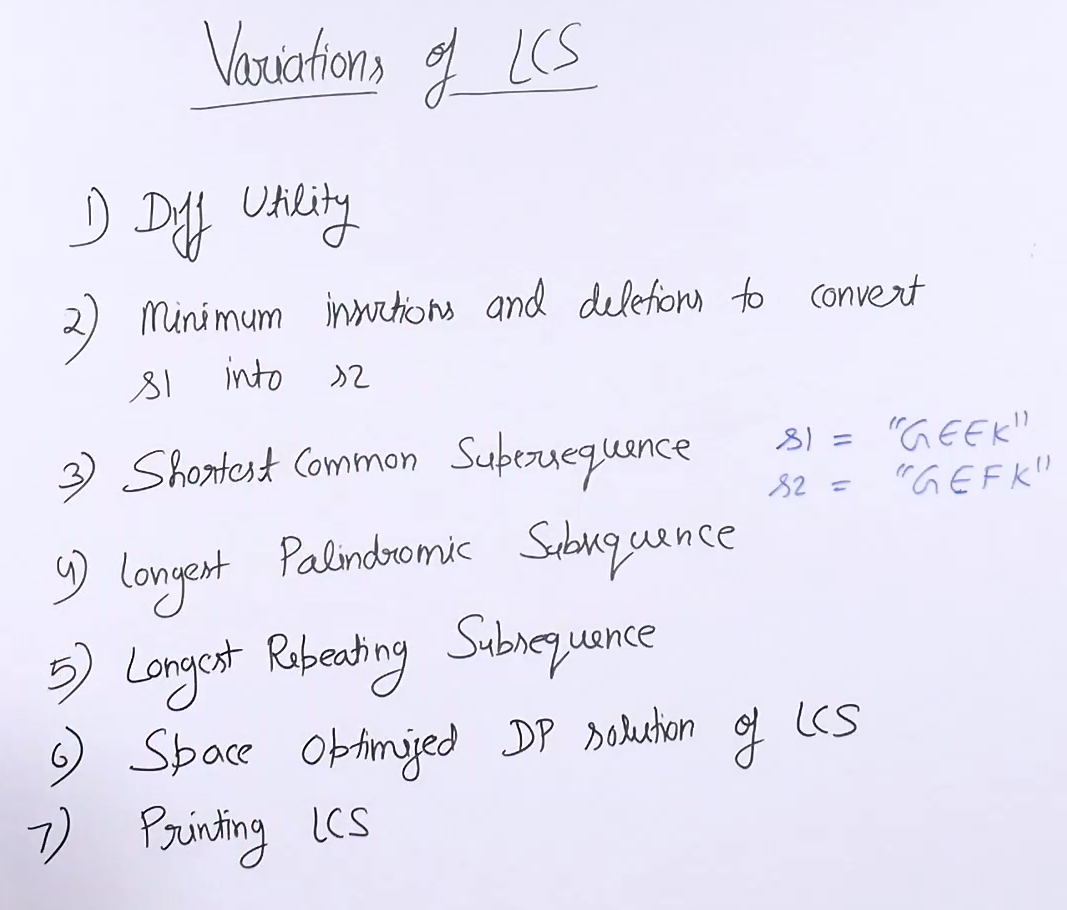 Variations of LCS
1) Diff Utility
2) Minimum insertions and deletions to convert
s1 into s2
3) Shortest Common Supersequence
s1 = "GEEK"
s2 = "GEFK"
4) Longest Palindromic Subsequence
5) Longest Repeating Subsequence
6) Space Optimized DP solution of LCS
7) Printing LCS